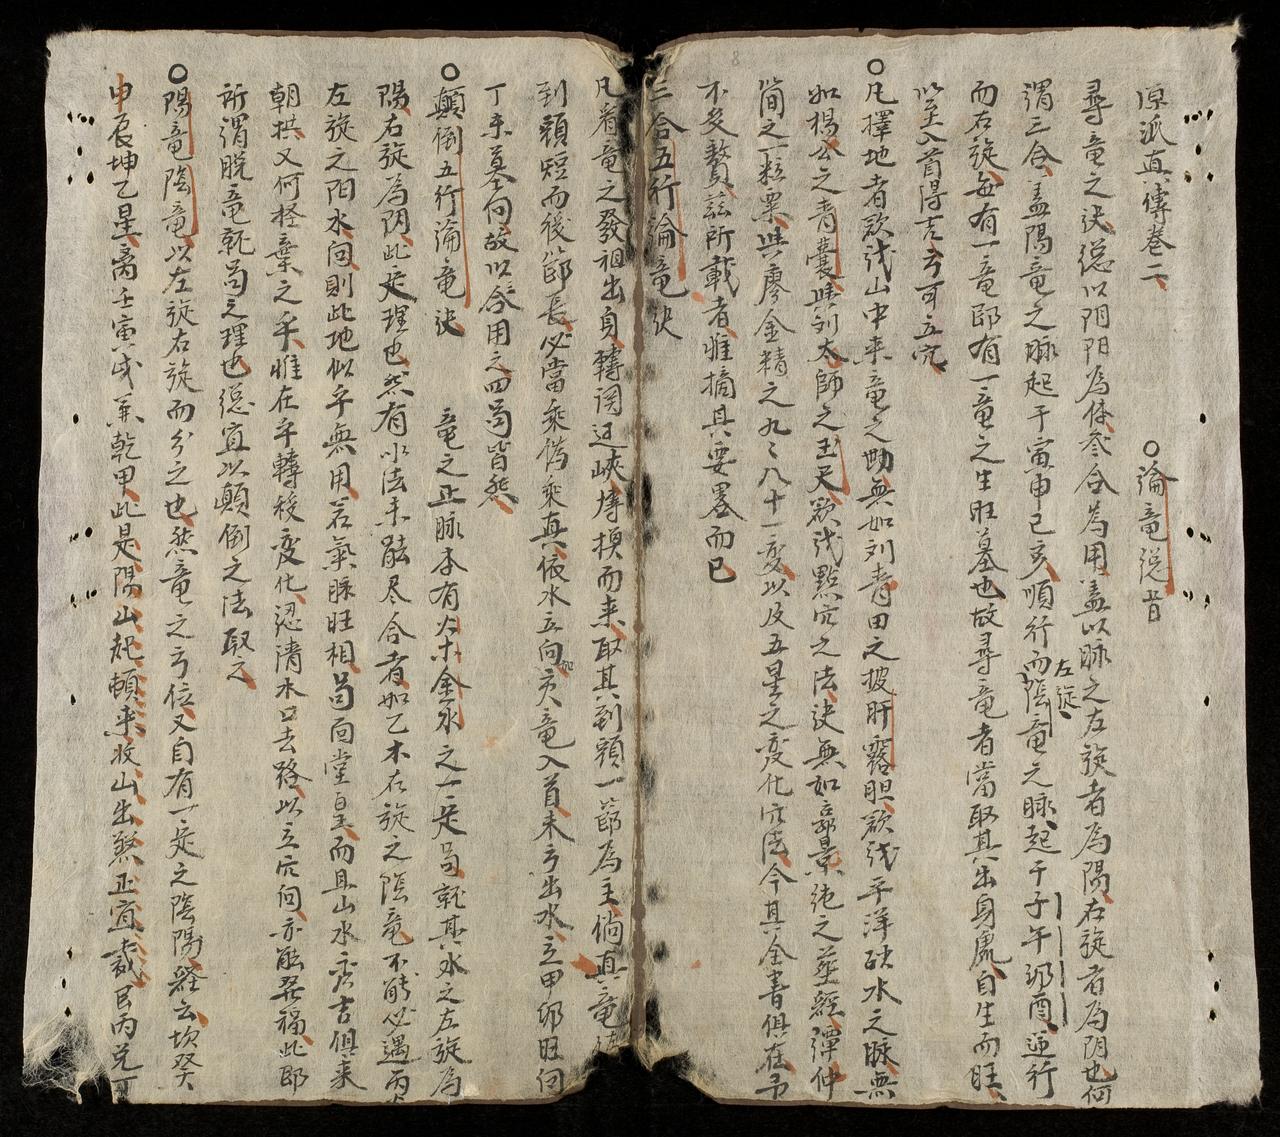 原派真傳卷二 ○論竜總旨
尋竜之訣總以阴阳為体叅合為用盖以脉之左旋者為陽右旋者為阴也何
謂三合盖陽竜之脉起于寅申巳亥順行而左旋陰竜之脉起于子午卯酉逆行
而右旋每有一竜即有一竜之生旺墓也故尋竜者當取其出身處自生而旺
以至入首得吉方可立穴
○凡擇地者欲求山中來竜之妙無如刘青田之披肝露胆欲求平洋砂水之脉無
如楊公之青囊與刘太師之玉尺欲求點穴之法訣無如郭景純之葬經譚仲
簡之一粒粟與廖金精之九九八十一变以及五星之变化穴法今其全書俱在予
不多贅茲所載者惟摘其要畧而已
三合五行論竜訣
凡看竜之發祖出身轉调过峽博换而來取其到頭一節為主倘真竜
到頭短而後節長必當乘偽乘真依水立向如亥竜入首未方出水立甲卯旺向
丁未墓向故以合用之四局皆然
○顛倒五行論竜訣 竜之正脉本有火木金水之一定局乾其水之左旋為
陽右旋為阴此定理也然有水法未能尽合者如乙木右旋之陰竜不能必遇丙火
左旋之阳水向則此地似乎無用若氣脉旺相局面堂皇而且山水秀吉俱来
朝拱又何輕棄之乎惟在乎轉移变化認清水口去路以立穴向亦能發福此即
所謂脱竜就局之理也總宜以顛倒之法取之
○陽竜陰竜以左旋右旋而分之也然竜之方位又自有一定之陰陽經云坎癸
申辰坤乙星离壬寅戌兼乾甲此是陽山起頓来收山出煞正宜裁艮丙兑丁